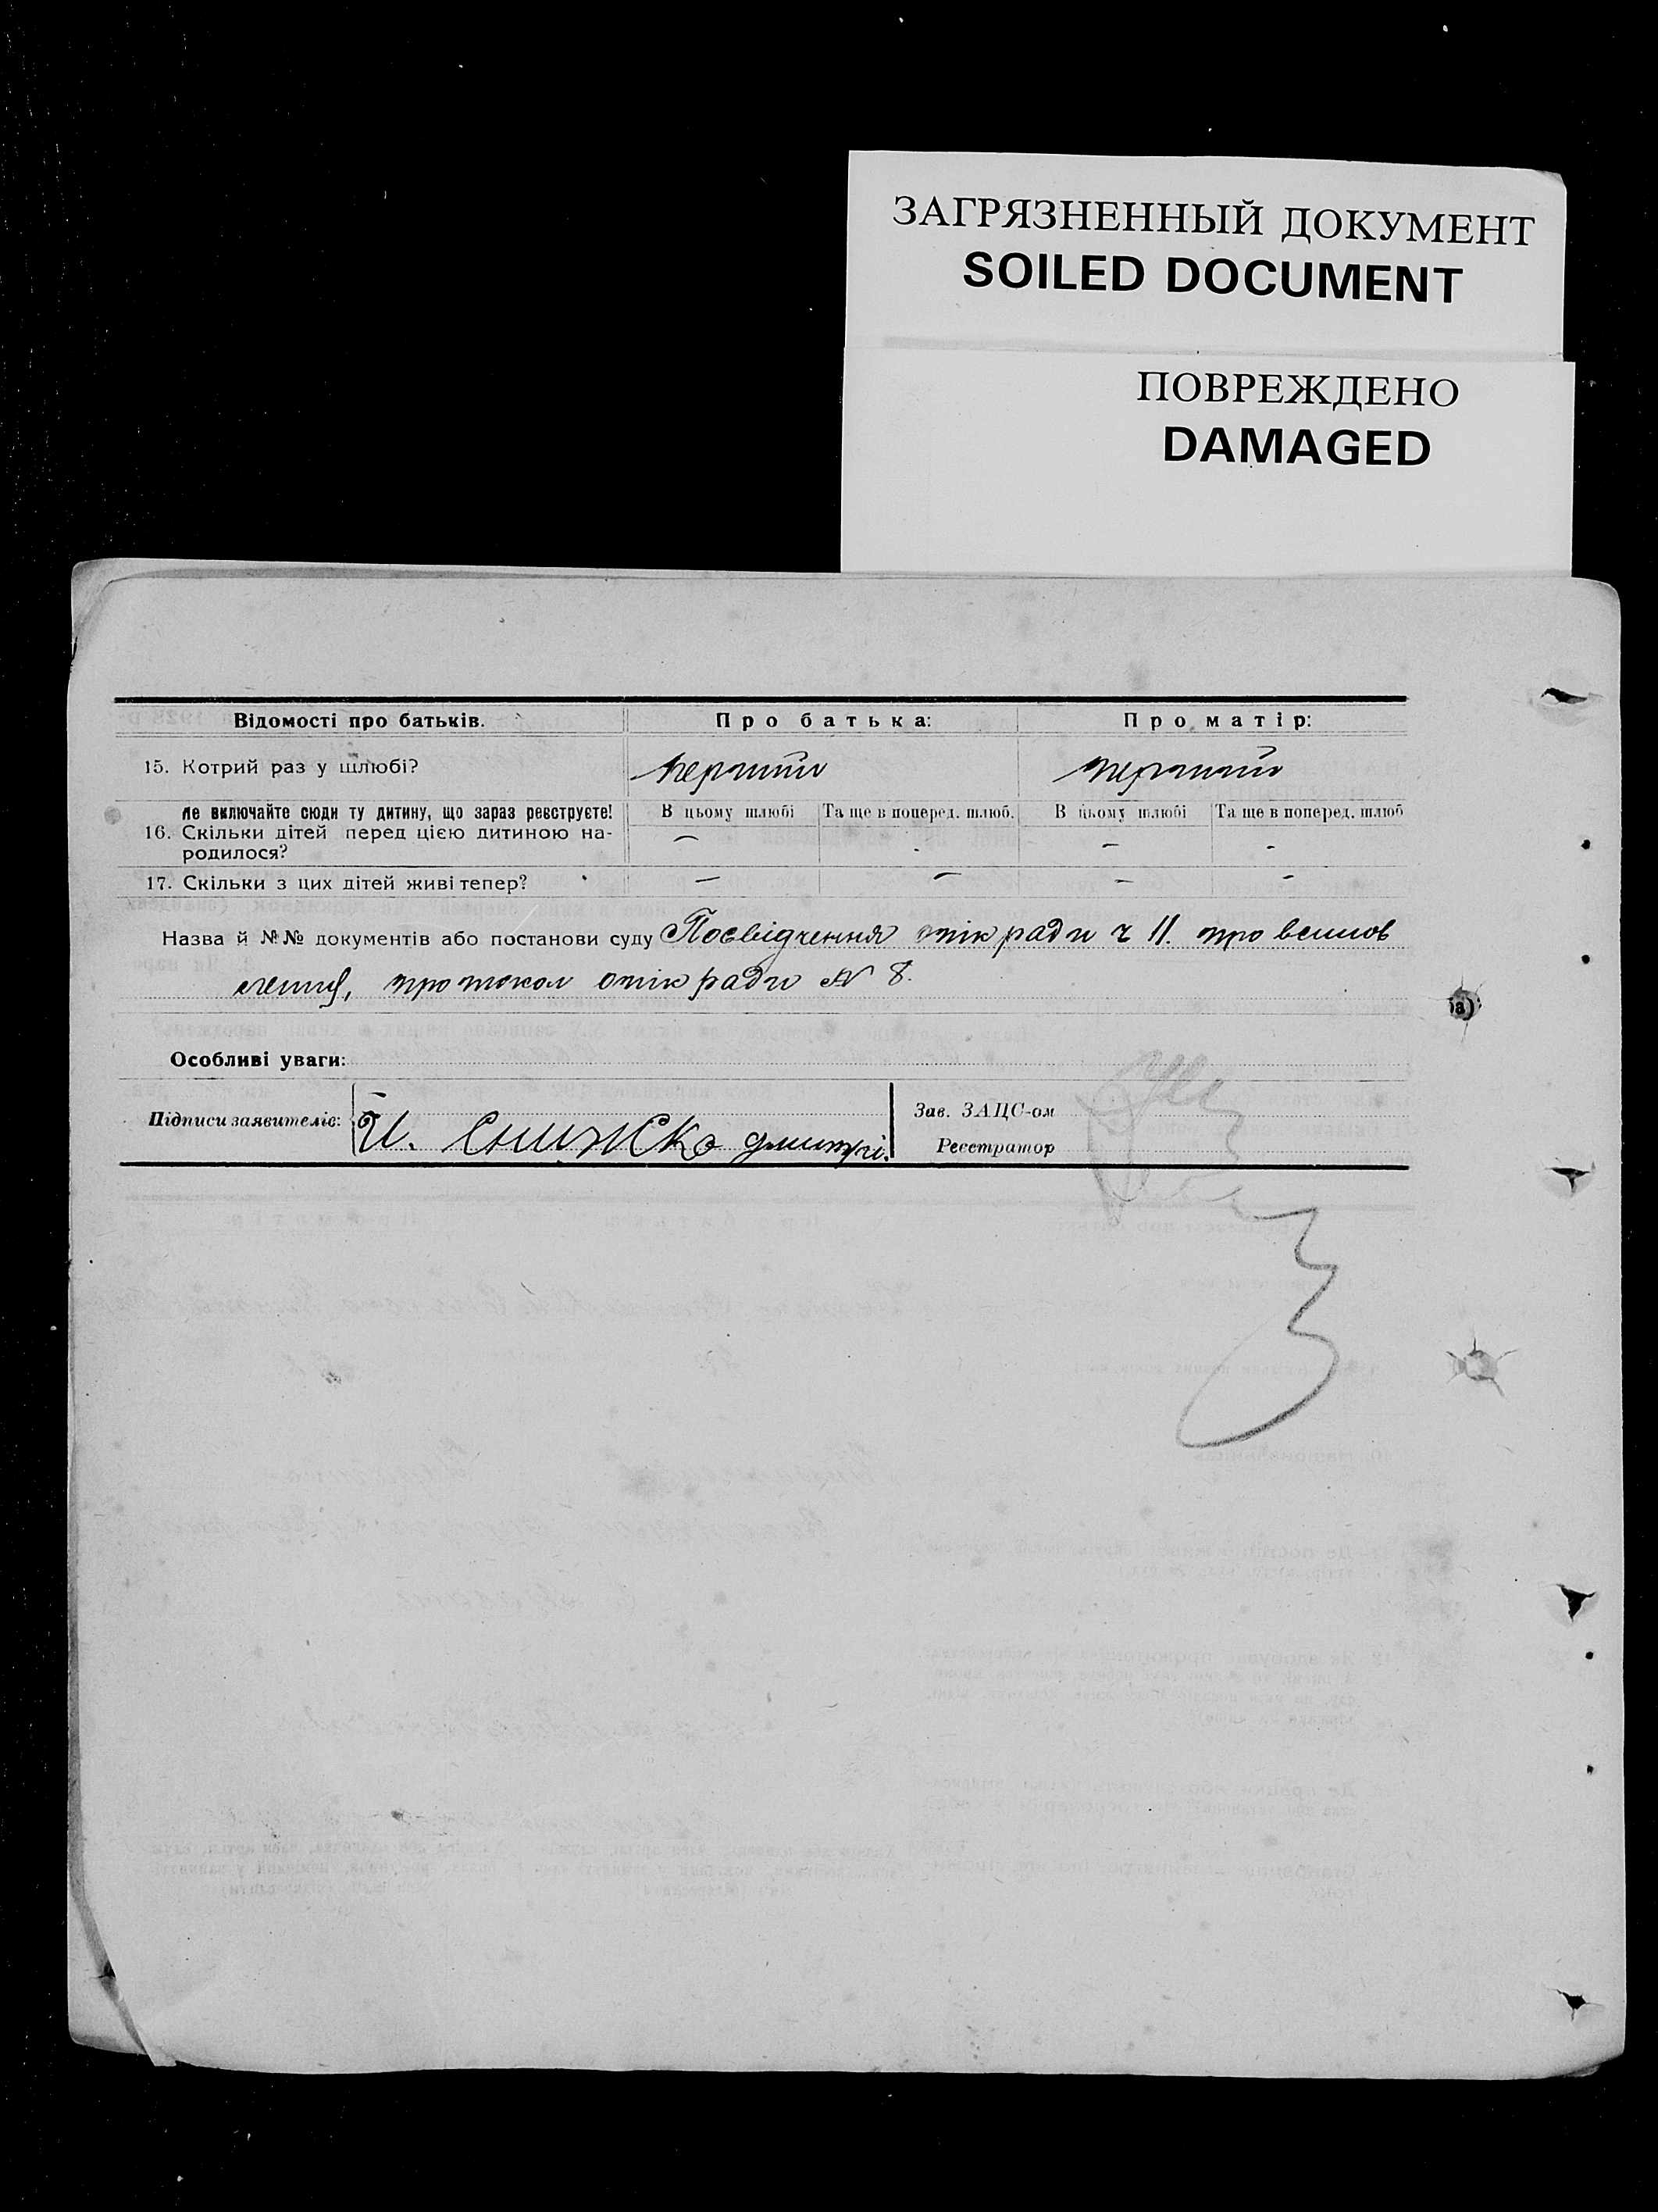 ЗАГРЯЗНЕННЫЙ ДОКУМЕНТ
SOILED DOCUMENT
ПОВРЕЖДЕНО
DAMAGED
Відомості про батьків. Про батька: Про матір:
15. Котрий раз у шлюбі? перший перший
Не включайте сюди ту дитину, що зараз реєструєте! В цьому шлюбі Та ще в поперед. шлюб. В цьому шлюбі Та ще в поперед. шлюб
16. Скільки дітей перед цією дитиною на- — - - -
родилося?
17. Скільки з цих дітей живі тепер? — — - -
Назва й №№ документів або постанови суду Посвідчення опік ради ч 11. про всинов
лення, протокол опік ради № 8.
Особливі уваги:
Підписи заявителів: Зав. ЗАЦС-ом
Реєстратор